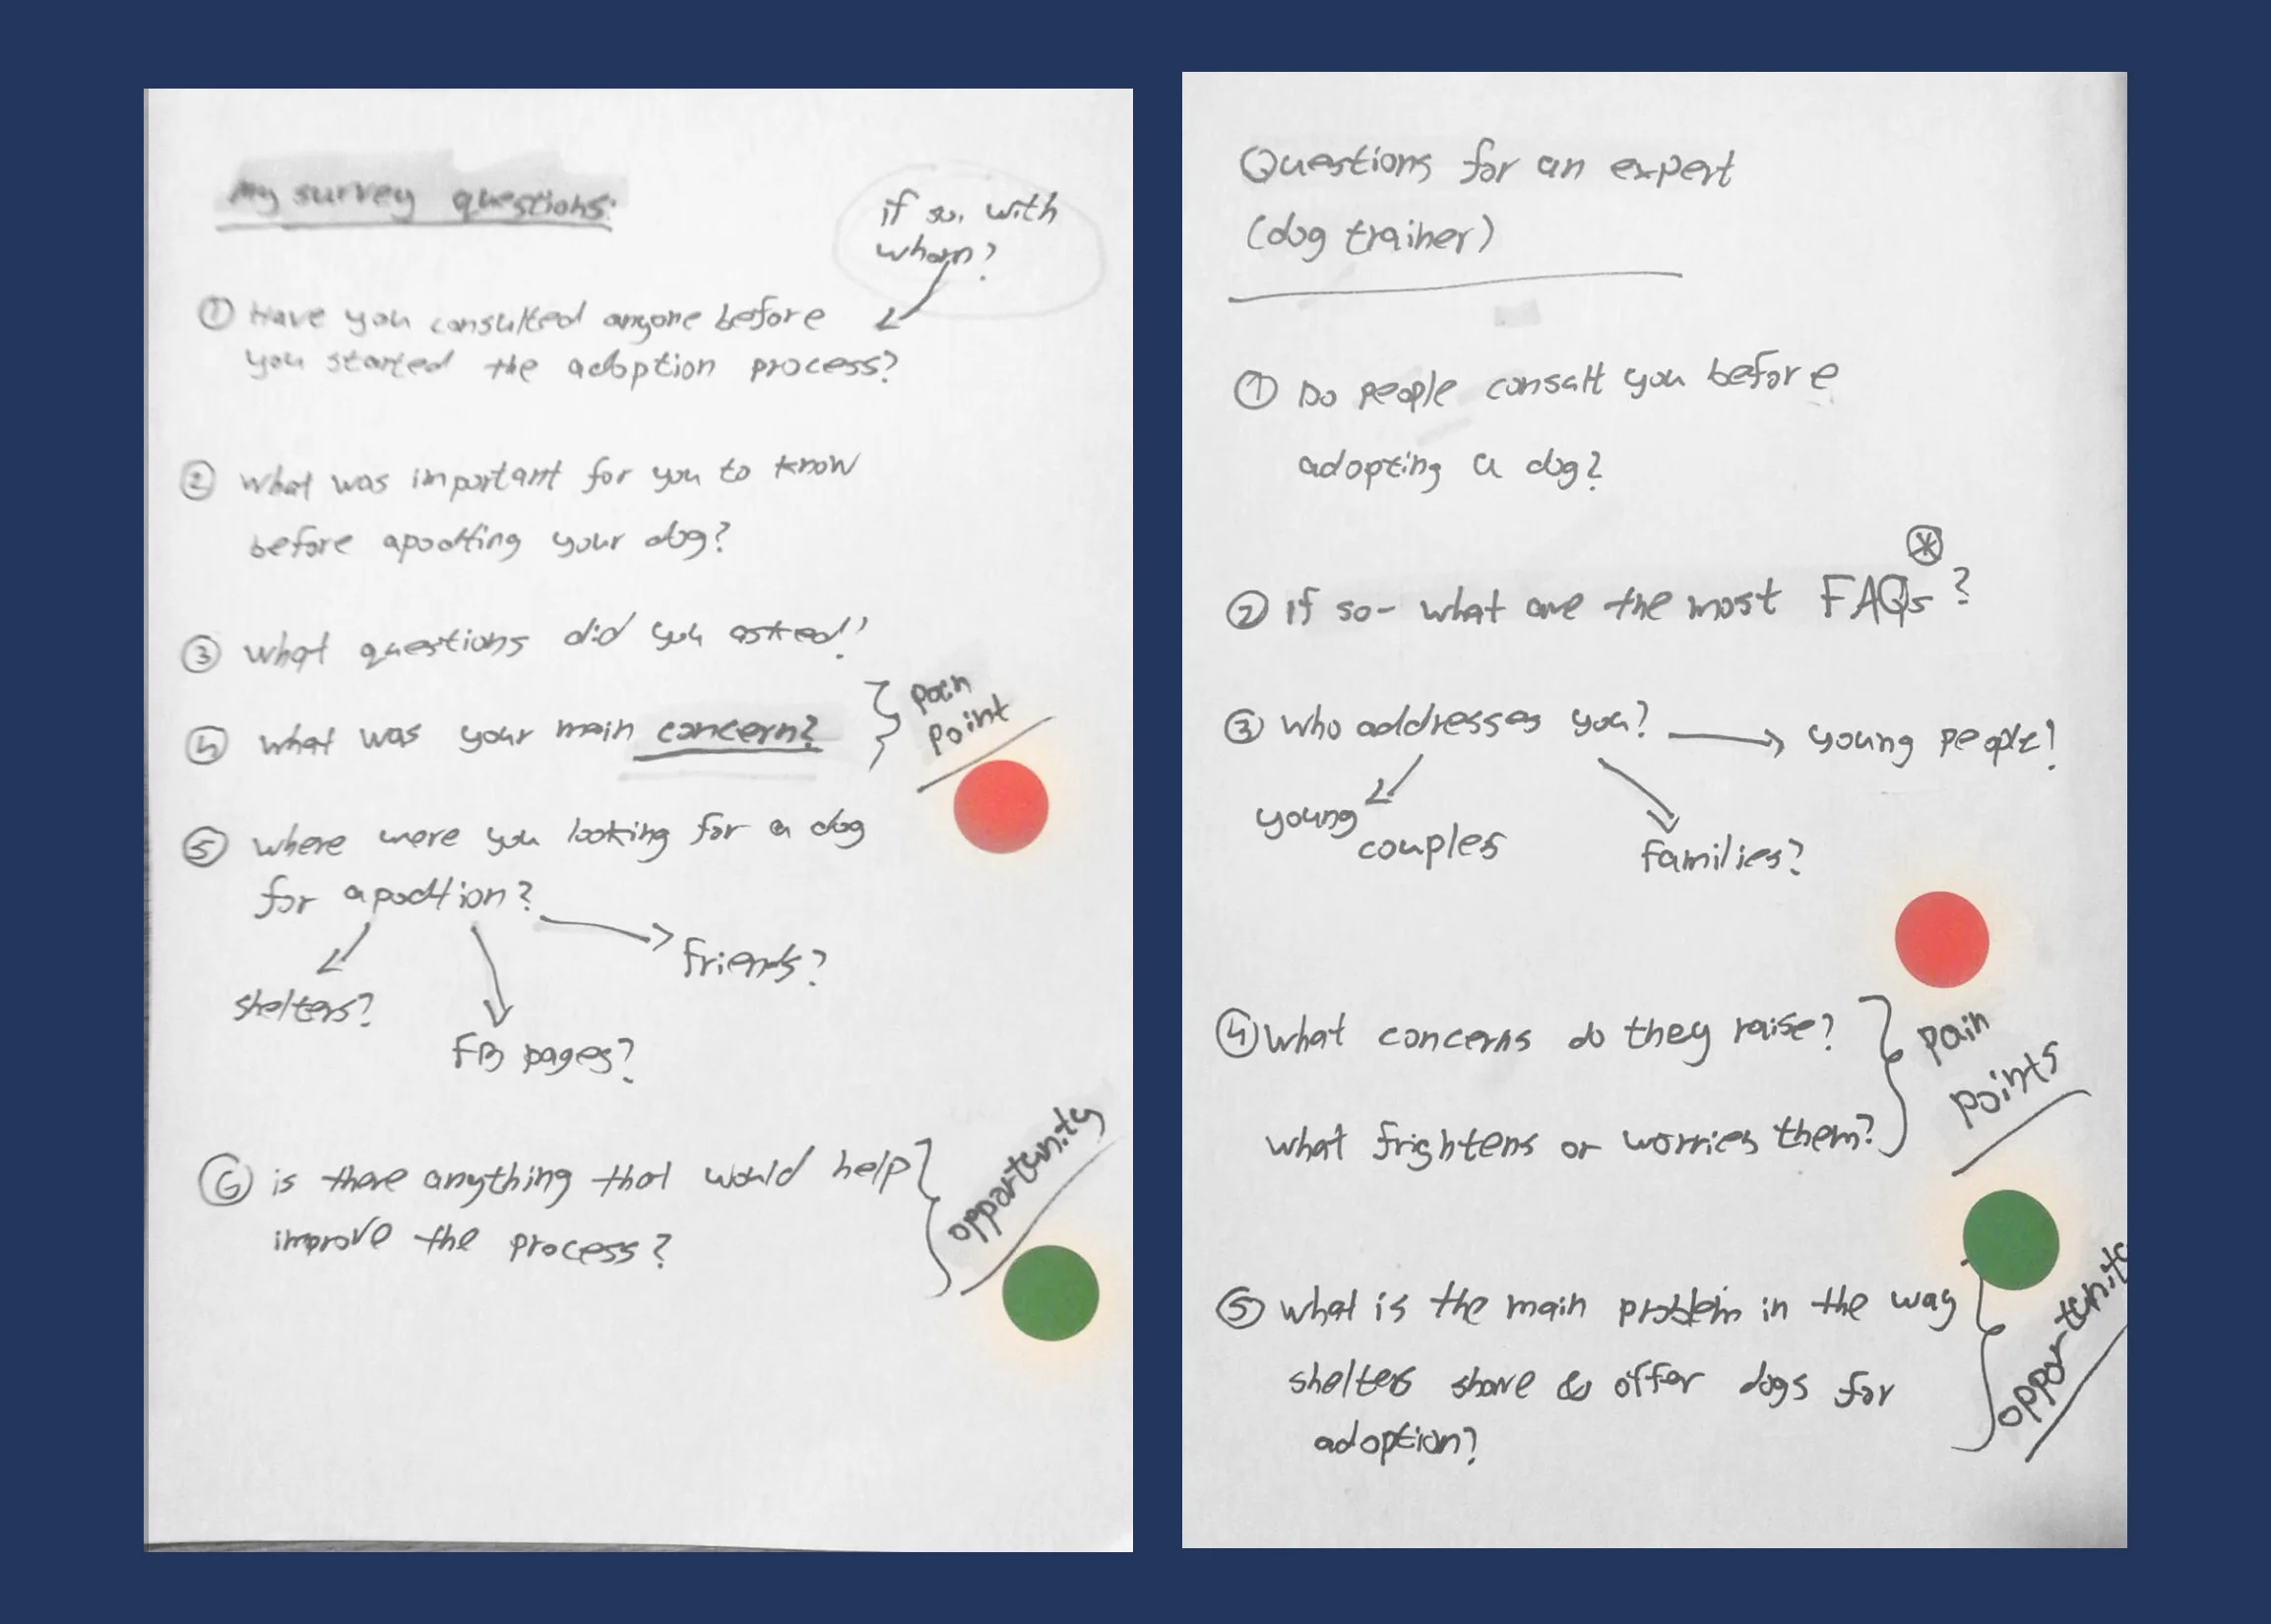 My survey questions:
if so, with
whom?
① Have you consulted anyone before
you started the adoption process?
② What was important for you to know
before apodtting your dog?
③ What questions did you asked?
④ what was your main concern?
pain
point
⑤ where were you looking for a dog
for apodtion?
friends?
shelters?
FB pages?
⑥ is there anything that would help
improve the process?
opportunity
Questions for an expert
(dog trainer)
① Do people consult you before
adopting a dog?
② If so- what are the most FAQs ?
③ who addresses you?
young people!
young
couples
Families?
④ What concerns do they raise?
what frightens or worries them?
pain
points
⑤ what is the main problem in the way
shelters share & offer dogs for
adoption?